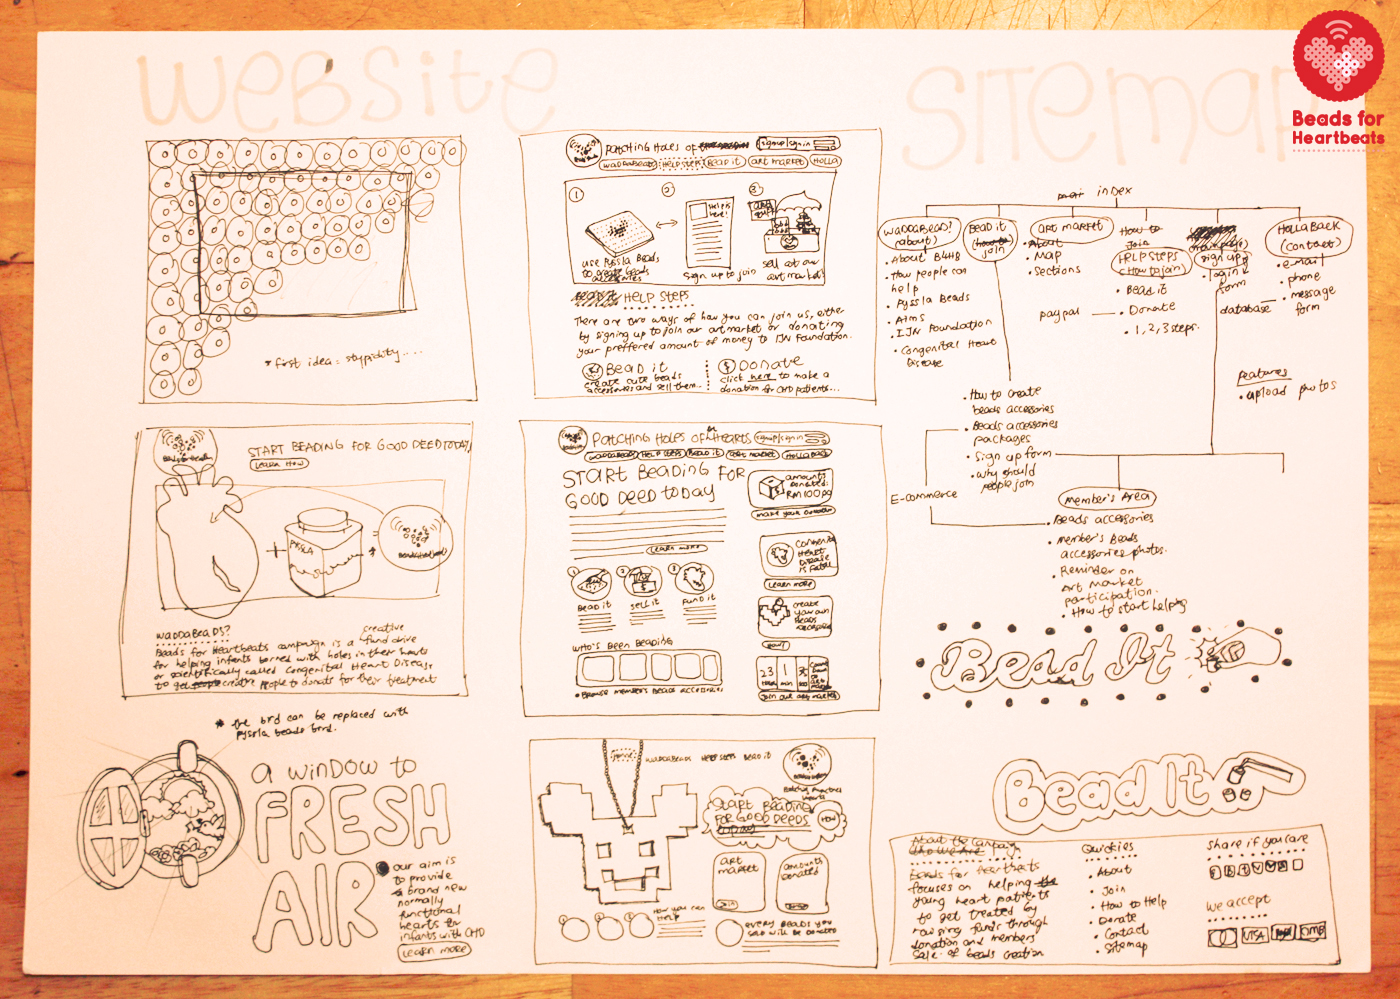 Website
Sitemap
Beads for
Heartbeats
*first idea = stypidity....
Patching Holes of
signup|signin
WADDABEADS
HELP STEPS
BEAD it
ART MARKET
HOLLA
1
2
3
Help is
here!
use Pyssla Beads
to create beads
accessories
sign up to join
sell at our
art market!
HELP STEPS
There are two ways of how you can join us, either
by signing up to join our art market or donating
your preffered amount of money to IJN Foundation.
Bead it
create cute beads
accessories and sell them...
$ Donate
click here to make a
donation for CHD patients...
index
WADDABEAD?
(about)
• About B4HB
• How people can
help
• Pyssla Beads
• Aims
• IJN Foundation
• Congenital Heart
Disease
BEAD it
(how to
join
ART MARKET
• About
• Map
• Sections
paypal
How to
Join
HELP STEPS
(How to join)
• Bead it
• Donate
• 1, 2, 3 steps.
sign up
• login
form
database
HOLLA BACK
(contact)
• e-mail
• phone
• message
form
features
• upload photos
• How to create
beads accessories
• Beads accessories
packages
• Sign up form
• why should
people join
E-commerce
Member's Area
• Beads accessories
• member's Beads
accessories photos.
• Reminder on
Art market
participation.
• How to start helping
START BEADING FOR GOOD DEED TODAY
Learn How
PYSSLA
+
WADDABEADS?
Beads for Heartbeats campaign is a creative fund drive
for helping infants borned with holes in their hearts
or scientifically called Congenital Heart Disease
to create people to donate for their treatment
* the bird can be replaced with
pyssla beads bird.
Patching Holes of Hearts
signup|signin
WADDABEADS
HELP STEPS
BEAD it
ART MARKET
HOLLA BACK
START BEADING FOR
GOOD DEED TODAY
Learn more
1
2
3
BEAD it
SELL it
FUND it
WHO'S BEEN BEADING
• BROWSE MEMBER'S BEADS ACCESSORIES
amounts
Donated:
RM100.00
make your donation
Congenital
Heart
Disease
is Fatal
Learn more
create
your own
Beads
accessories
23
1
min
join our art market
Bead It
a WINDOW to
FRESH
AIR
our aim is
to provide
a brand new
normally
functional
hearts for
infants with CHD
LEARN MORE
WADDABEADS
HELP STEPS
BEAD it
START BEADING
FOR GOOD DEEDS
TODAY
HOW
ART
MARKET
JOIN
amounts
Donated
How you can
help
EVERY BEADS YOU
SOLD WILL BE DONATED
Bead It
About the Campaign
Who We Are
Beads for Heartbeats
focuses on helping the
young heart patients
to get treated by
raising funds through
donation and members
sale of beads creation
Quickies
• About
• Join
• How to Help
• Donate
• Contact
• Sitemap
Share if you care
We accept
VISA